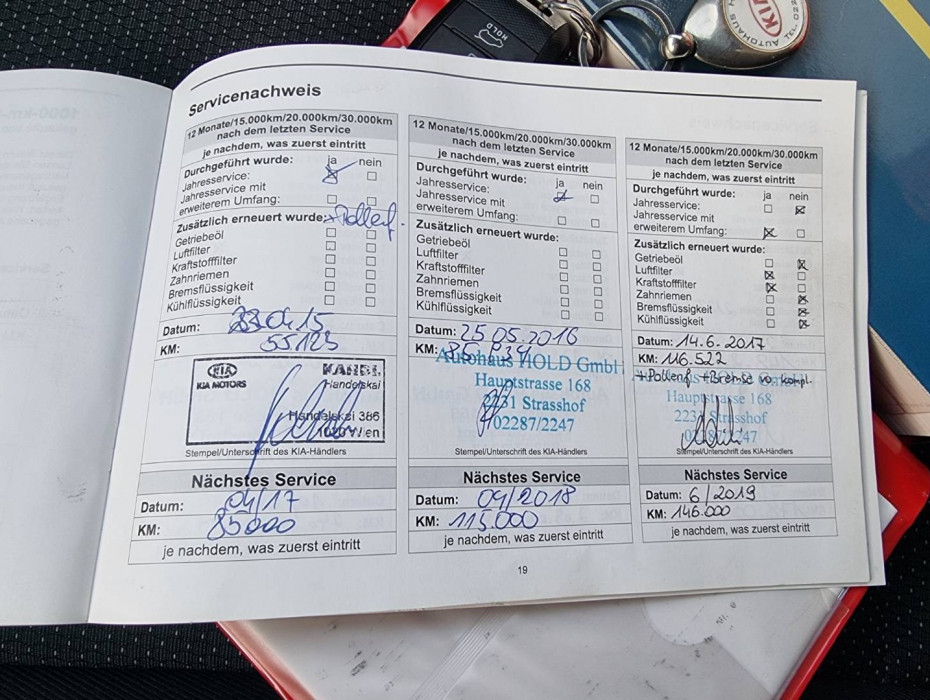 HOLD
KIA
AUTOHAUS H
TEL.
Servicenachweis
12 Monate/15.000km/20.000km/30.000km
nach dem letzten Service
je nachdem, was zuerst eintritt
Durchgeführt wurde: ja nein
Jahresservice:
Jahresservice mit
erweiterem Umfang:
Zusätzlich erneuert wurde: +Pollenf.
Getriebeöl
Luftfilter
Kraftstofffilter
Zahnriemen
Bremsflüssigkeit
Kühlflüssigkeit
Datum: 04.15
KM: 55123
KIA
KIA MOTORS
KANDL
Handelskai
Handelskai 386
1020 Wien
Stempel/Unterschrift des KIA-Händlers
Nächstes Service
Datum: 04/17
KM: 85000
je nachdem, was zuerst eintritt
12 Monate/15.000km/20.000km/30.000km
nach dem letzten Service
je nachdem, was zuerst eintritt
Durchgeführt wurde: ja nein
Jahresservice:
Jahresservice mit
erweiterem Umfang:
Zusätzlich erneuert wurde:
Getriebeöl
Luftfilter
Kraftstofffilter
Zahnriemen
Bremsflüssigkeit
Kühlflüssigkeit
Datum: 25.05.2016
KM:
Autohaus HOLD GmbH
Hauptstrasse 168
2231 Strasshof
02287/2247
Stempel/Unterschrift des KIA-Händlers
Nächstes Service
Datum: 04/2018
KM: 115.000
je nachdem, was zuerst eintritt
12 Monate/15.000km/20.000km/30.000km
nach dem letzten Service
je nachdem, was zuerst eintritt
Durchgeführt wurde: ja nein
Jahresservice:
Jahresservice mit
erweiterem Umfang:
Zusätzlich erneuert wurde:
Getriebeöl
Luftfilter
Kraftstofffilter
Zahnriemen
Bremsflüssigkeit
Kühlflüssigkeit
Datum: 14.6.2017
KM: 116.522
+Pollenf +Bremse vo. kompl.
Hauptstrasse 168
2231 Strasshof
02287/2247
Stempel/Unterschrift des KIA-Händlers
Nächstes Service
Datum: 6/2019
KM: 146.000
je nachdem, was zuerst eintritt
19